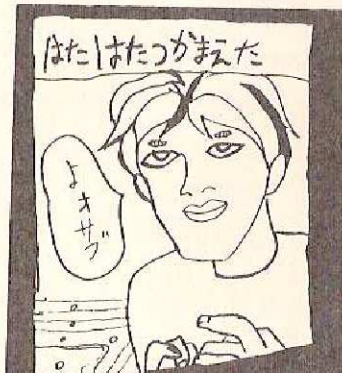 はたはたつかまえた
よオサブ